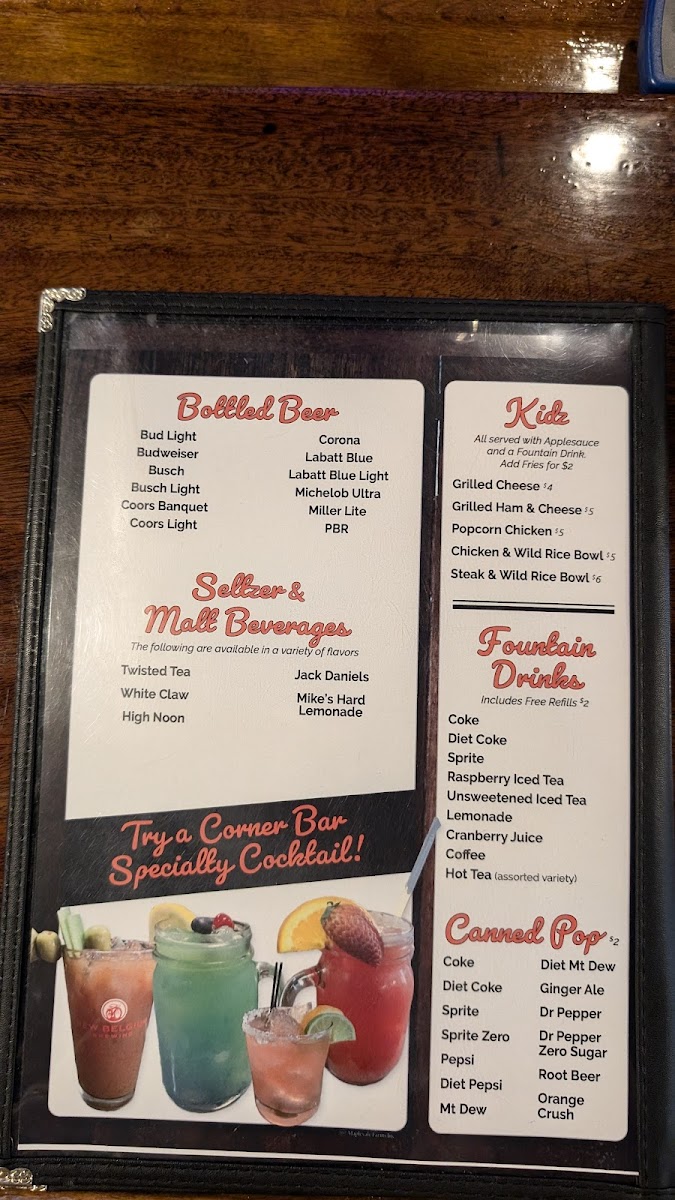 Bottled Beer
Bud Light
Budweiser
Busch
Busch Light
Coors Banquet
Coors Light
Corona
Labatt Blue
Labatt Blue Light
Michelob Ultra
Miller Lite
PBR
Seltzer &
Malt Beverages
The following are available in a variety of flavors
Twisted Tea
White Claw
High Noon
Jack Daniels
Mike's Hard
Lemonade
Try a Corner Bar
Specialty Cocktail!
NEW BELGIUM
BREWING
Kidz
All served with Applesauce
and a Fountain Drink.
Add Fries for $2
Grilled Cheese $4
Grilled Ham & Cheese $5
Popcorn Chicken $5
Chicken & Wild Rice Bowl $5
Steak & Wild Rice Bowl $6
Fountain
Drinks
Includes Free Refills $2
Coke
Diet Coke
Sprite
Raspberry Iced Tea
Unsweetened Iced Tea
Lemonade
Cranberry Juice
Coffee
Hot Tea (assorted variety)
Canned Pop $2
Coke
Diet Coke
Sprite
Sprite Zero
Pepsi
Diet Pepsi
Mt Dew
Diet Mt Dew
Ginger Ale
Dr Pepper
Dr Pepper
Zero Sugar
Root Beer
Orange
Crush